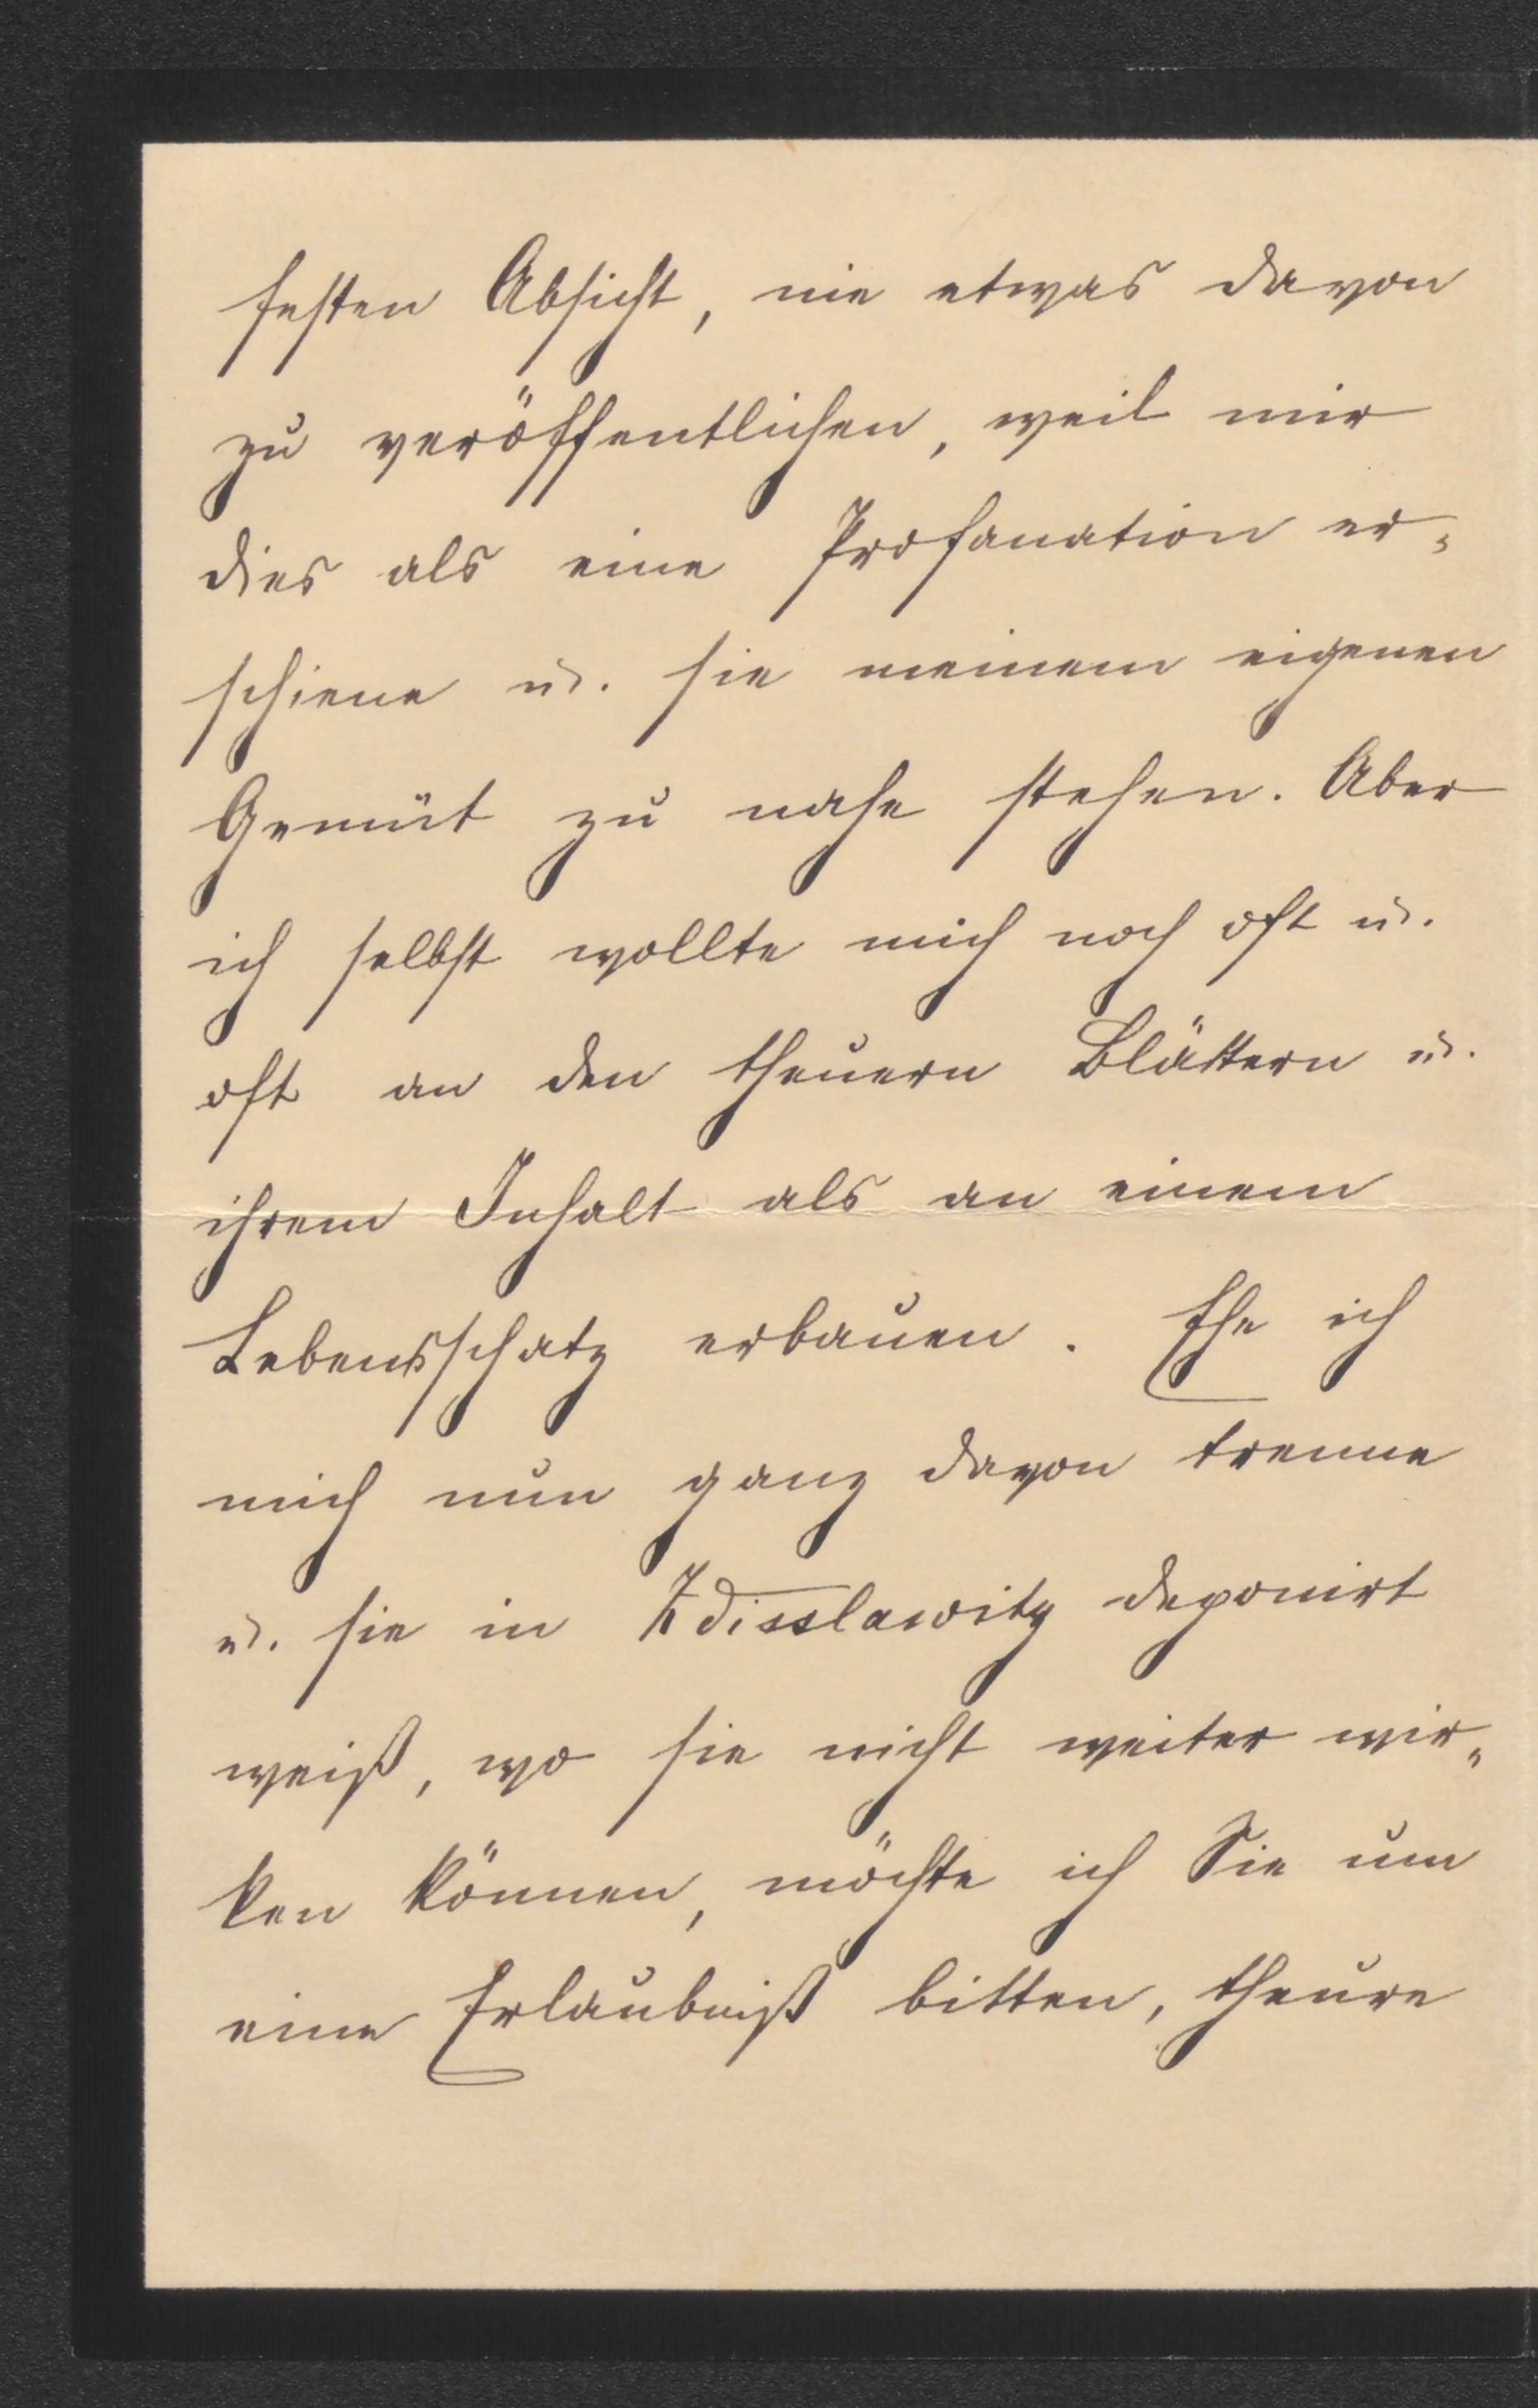 festen Absicht, nie etwas davon
zu veröffentlichen, weil mir
dies als eine Profanation er-
schiene u. sie meinem eigenen
Gemüt zu nahe stehen. Aber
ich selbst wollte mich noch oft u.
oft an den theuern Blättern u.
ihrem Inhalt als an einem
Lebensschatz erbauen. Ehe ich
mich nun ganz davon trenne
u. sie in Zdisslawitz deponirt
weiß, wo sie nicht weiter wir-
ken können, möchte ich Sie um
eine Erlaubniß bitten, theure